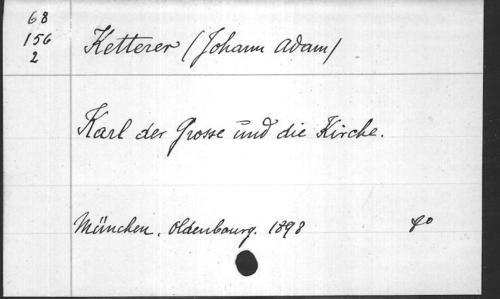 68
156
2
Ketterer (Johann Adam)
Karl der Grosse und die Kirche.
München. Oldenbourg. 1898 8°